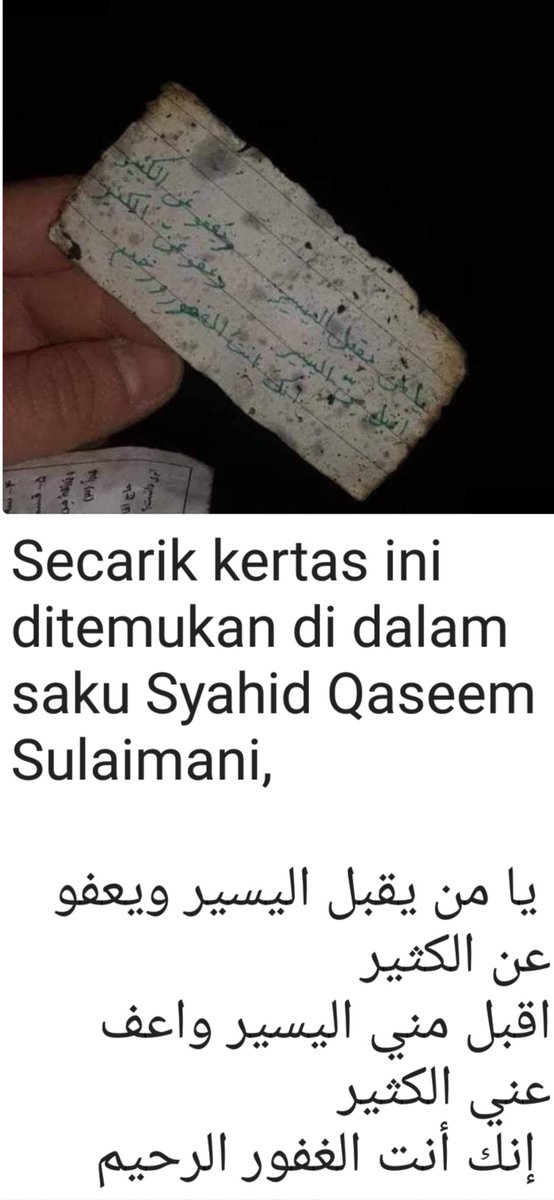 يا من يقبل اليسير ويعفو عن الكثير
اقبل اليسير الكثير
انك انت الغفور
Secarik kertas ini
ditemukan di dalam
saku Syahid Qaseem
Sulaimani,
يا من يقبل اليسير ويعفو
عن الكثير
اقبل مني اليسير واعف
عني الكثير
إنك أنت الغفور الرحيم